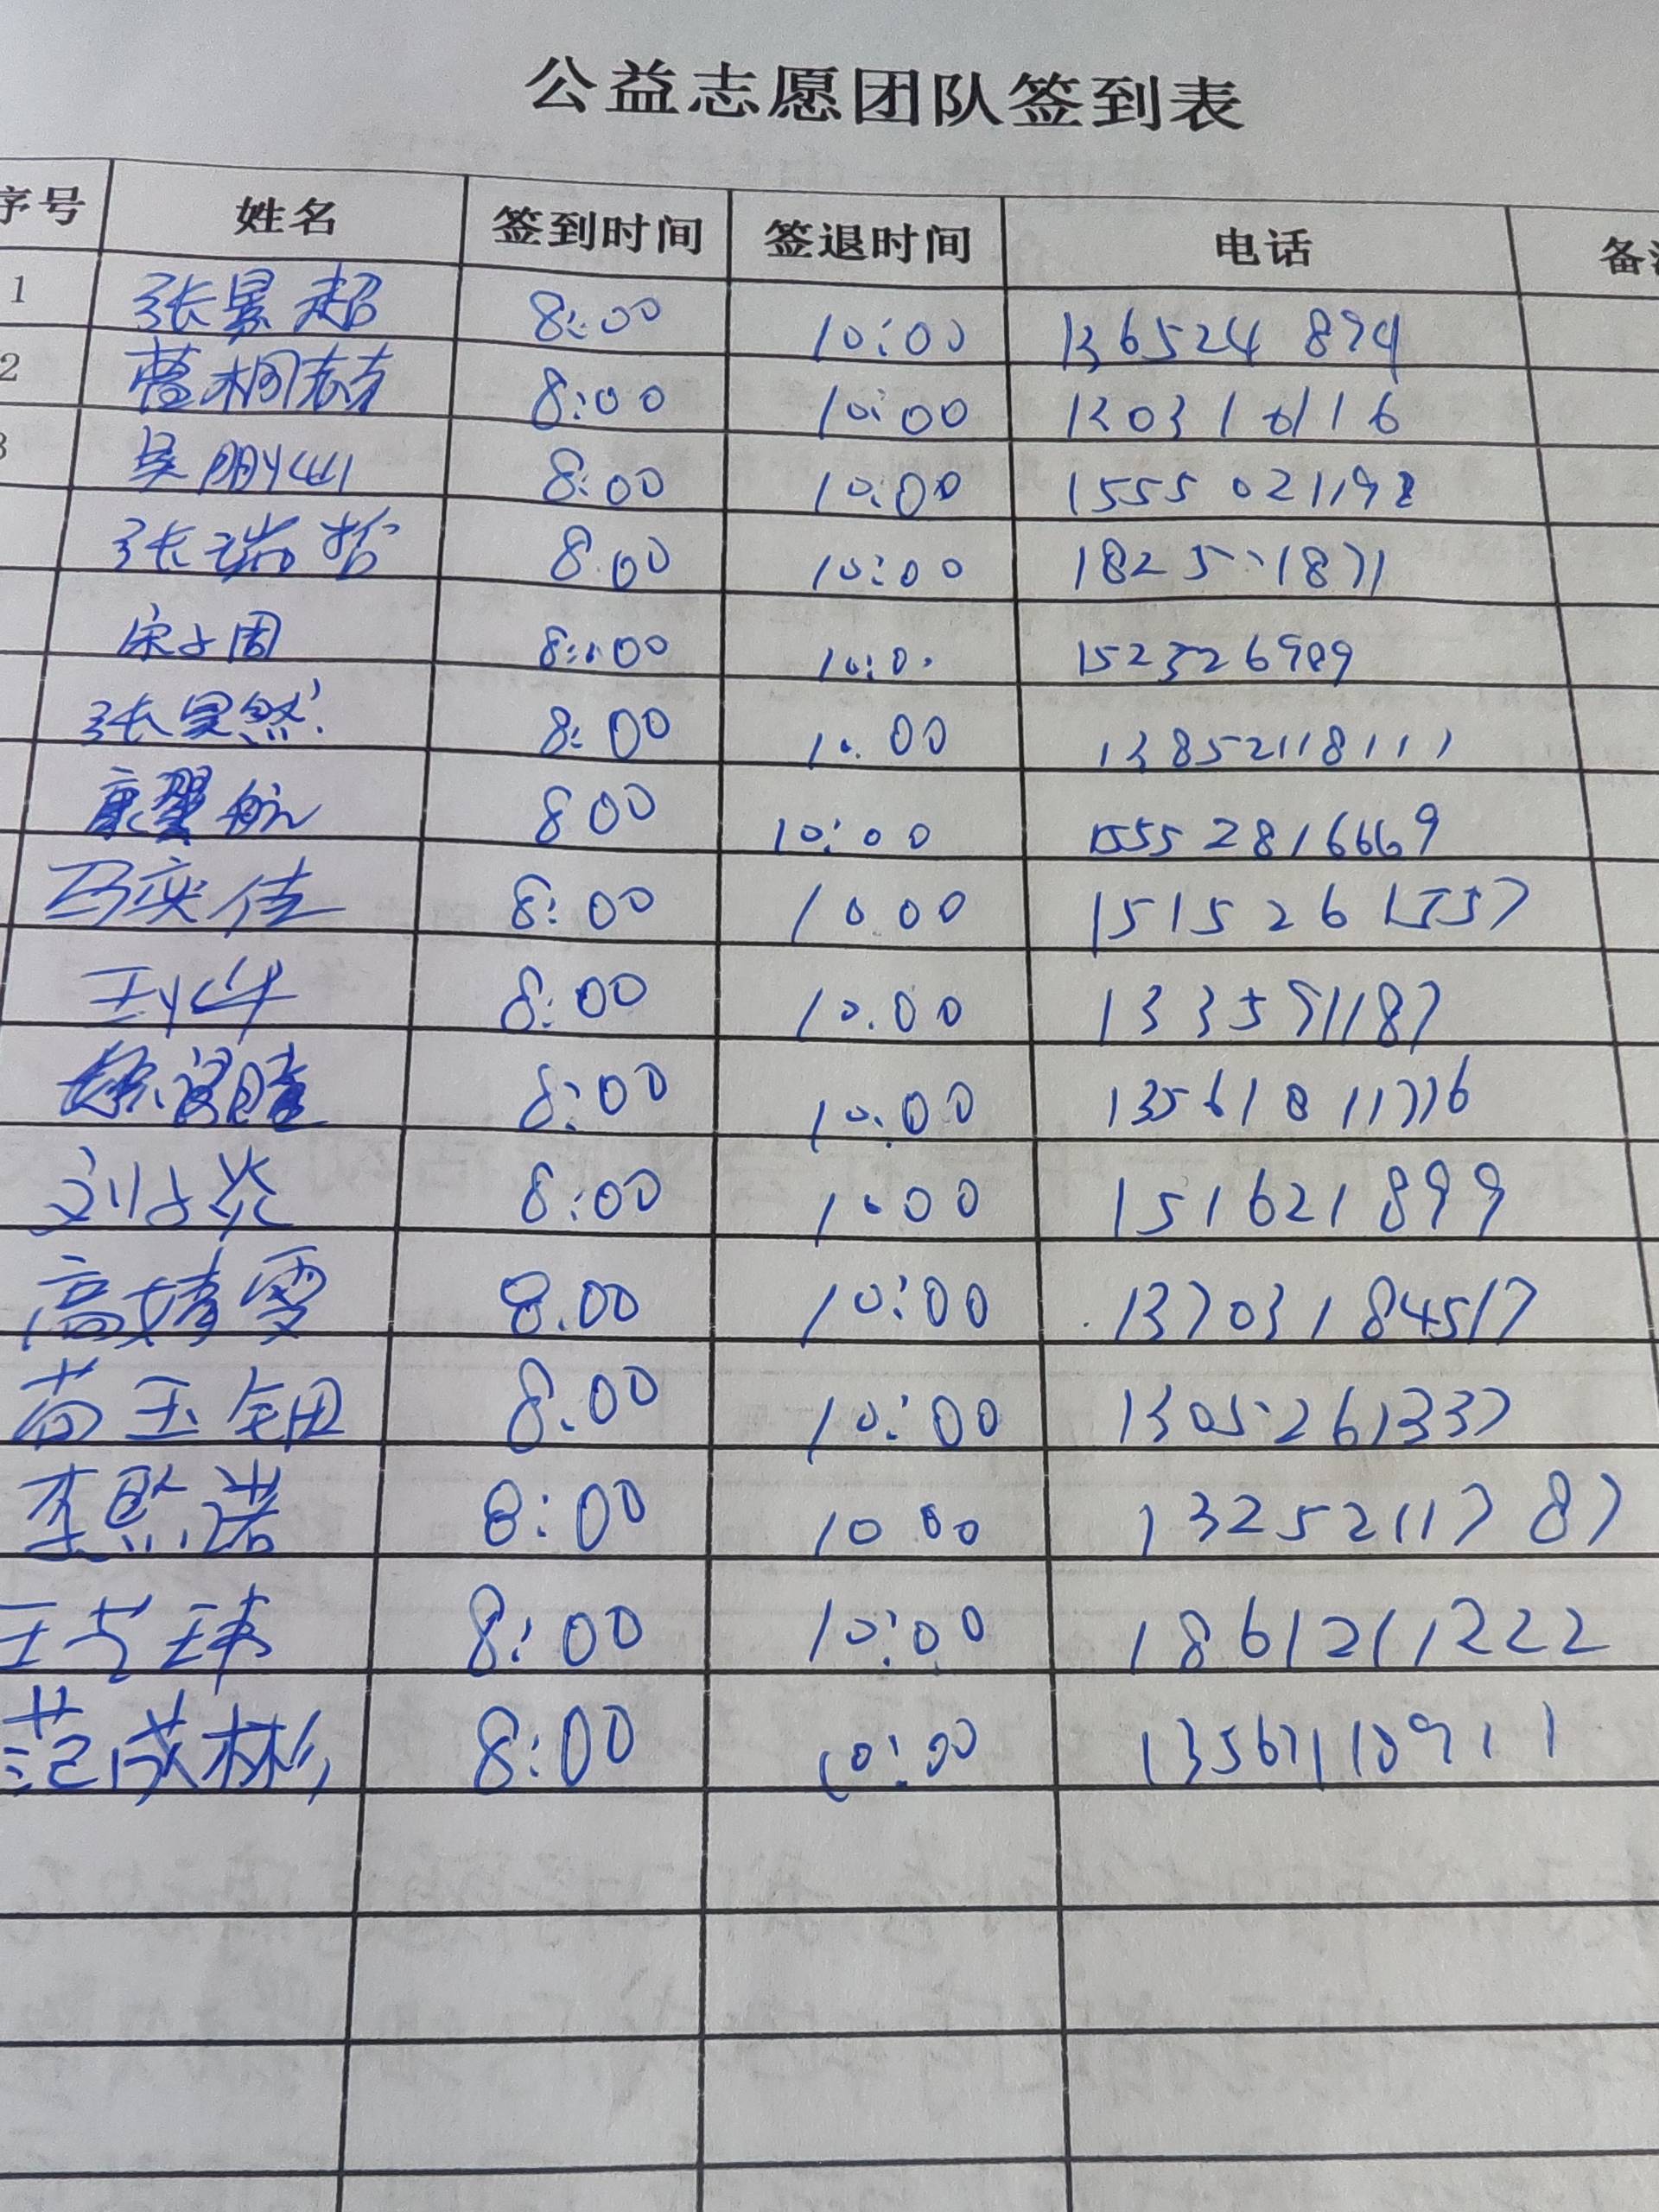 公益志愿团队签到表
序号 姓名 签到时间 签退时间 电话 备
1 张景超 8:00 10:00 136524 894
2 曹桐赫 8:00 10:00 1303 1 6116
3 吴朋灿 8:00 10:00 1555 021192
张瑞哲 8.00 10:00
宋子周 8:00 10:0. 152326989
张昊然 8:00 10.00 13852118111
康翼航 8 00 10:00 1555 2816669
马奕佳 8:00 10.00 1515 26 1557
王业华 8:00 10.00 133591187
8:00 10:00 13561811776
刘子炎 8:00 10:00 151621 899
高婧雯 8.00 10:00 137031 84517
苟玉钿 8.00 10:00 1305261337
李熙诺 8:00 10 00 1325211787
王艺玮 8:00 10:00 1861211222
范成彬 8:00 10:00